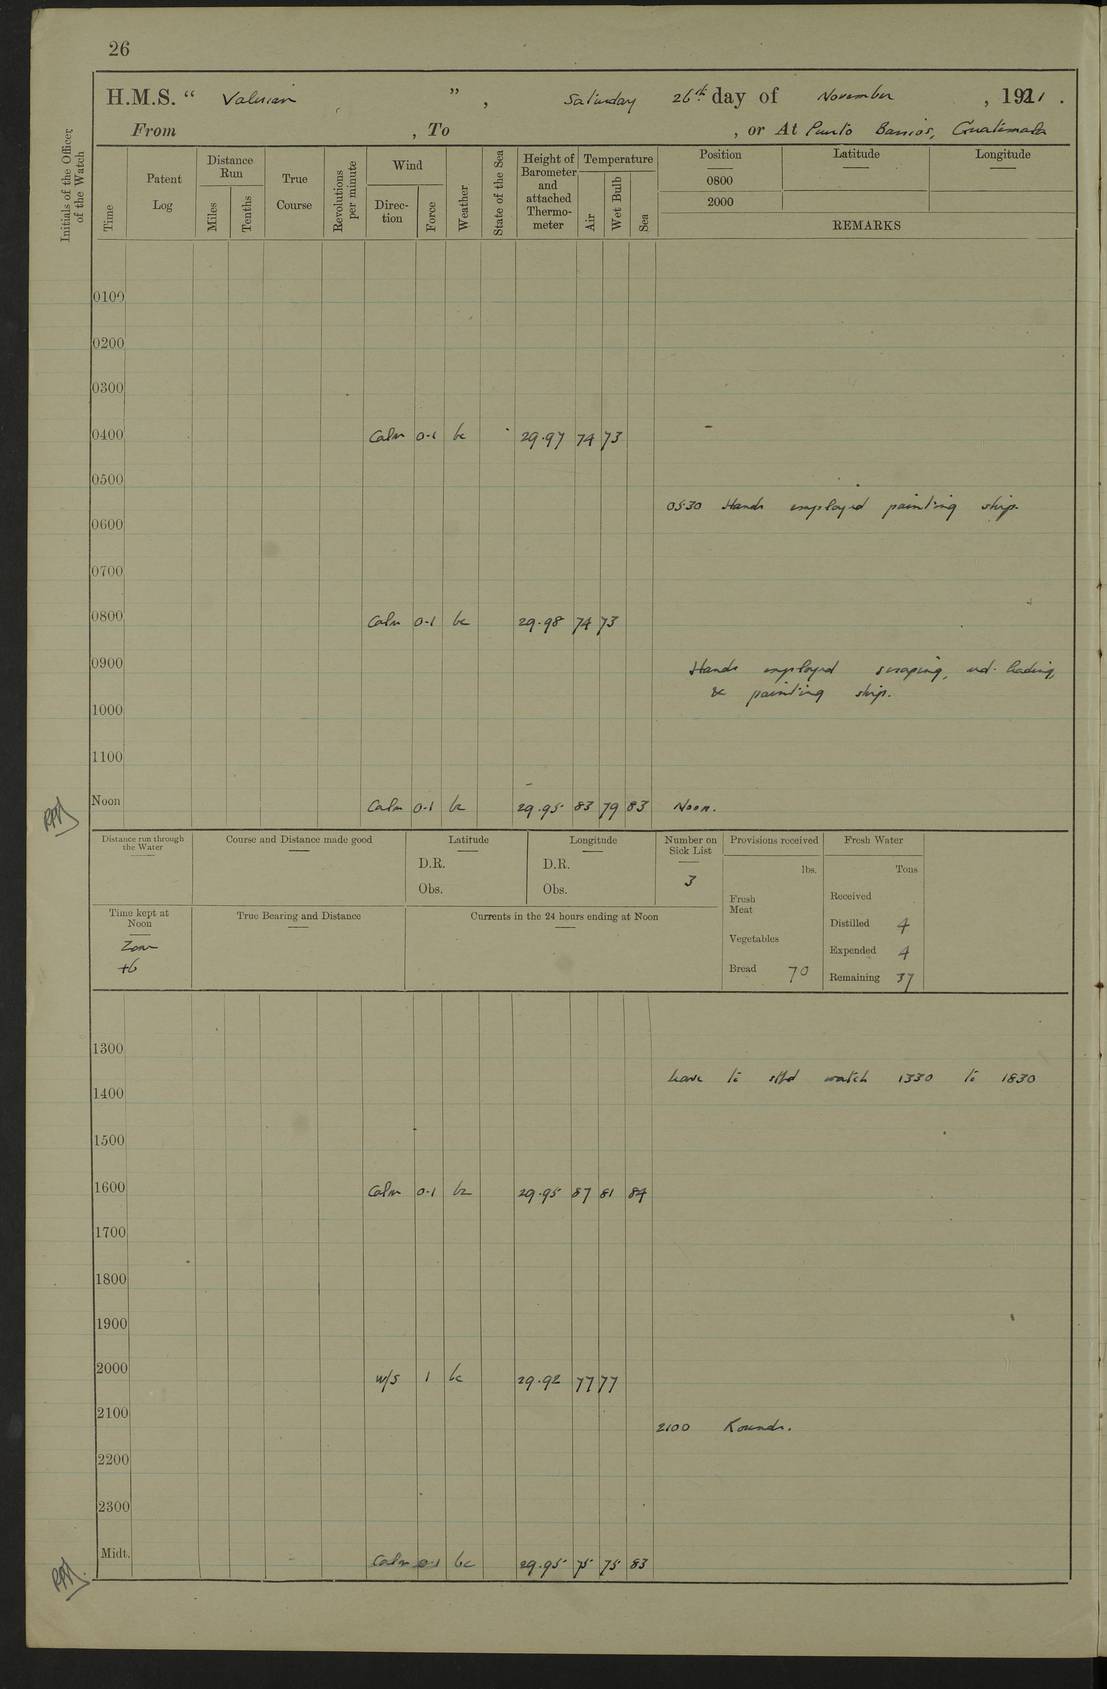 26
H.M.S. “ Valerian ” , Saturday 26th day of November , 1921 .
From , To , or At Puerto Barrios, Guatemala
Initials of the Officer of the Watch
Time
Patent Log
Distance Run
Miles
Tenths
True Course
Revolutions per minute
Wind
Direc-tion
Force
Weather
State of the Sea
Height of Barometer and attached Thermo-meter
Temperature
Air
Wet Bulb
Sea
Position
Latitude
Longitude
0800
2000
REMARKS
0100
0200
0300
0400 Calm 0-1 bc 29.97 74 73
0500
0530 Hands employed painting ship.
0600
0700
0800 Calm 0-1 bc 29.98 74 73
0900 Hands employed scraping, red leading,
& painting ship.
1000
1100
Noon Calm 0-1 bc 29.95 83 79 83 Noon.
Distance run through the Water
Course and Distance made good
Latitude
D.R.
Obs.
Longitude
D.R.
Obs.
Number on Sick List
3
Provisions received
lbs.
Fresh Meat
Vegetables
Bread 70
Fresh Water
Tons
Received
Distilled 4
Expended 4
Remaining 37
Time kept at Noon
Zone
+6
True Bearing and Distance
Currents in the 24 hours ending at Noon
1300
Leave to stbd watch 1330 to 1830
1400
1500
1600 Calm 0-1 bc 29.95 87 81 84
1700
1800
1900
2000 W/S 1 bc 29.92 77 77
2100 2100 Rounds.
2200
2300
Midt. Calm 0-1 bc 29.95 75 75 83